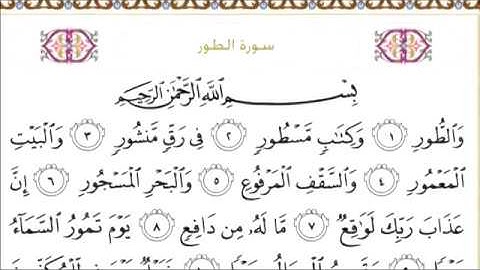 سورة الطور
بِسْمِ ٱللَّهِ ٱلرَّحْمَٰنِ ٱلرَّحِيمِ
وَٱلطُّورِ ١ وَكِتَٰبٍ مَّسْطُورٍ ٢ فِى رَقٍّ مَّنشُورٍ ٣ وَٱلْبَيْتِ
ٱلْمَعْمُورِ ٤ وَٱلسَّقْفِ ٱلْمَرْفُوعِ ٥ وَٱلْبَحْرِ ٱلْمَسْجُورِ ٦ إِنَّ
عَذَابَ رَبِّكَ لَوَٰقِعٌ ٧ مَّا لَهُۥ مِن دَافِعٍ ٨ يَوْمَ تَمُورُ ٱلسَّمَآءُ